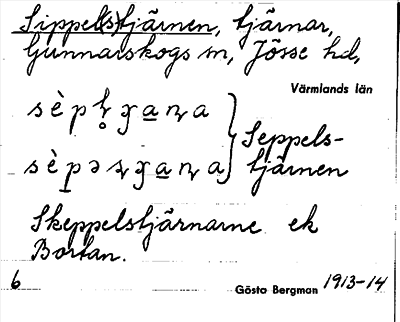 Sippel(s)tjärnen, tjärnar,
Gunnarskogs sn, Jösse hd,
Värmlands län
Seppels-
tjärnen
Skeppelstjärnarne ek
Bortan.
6 Gösta Bergman 1913-14